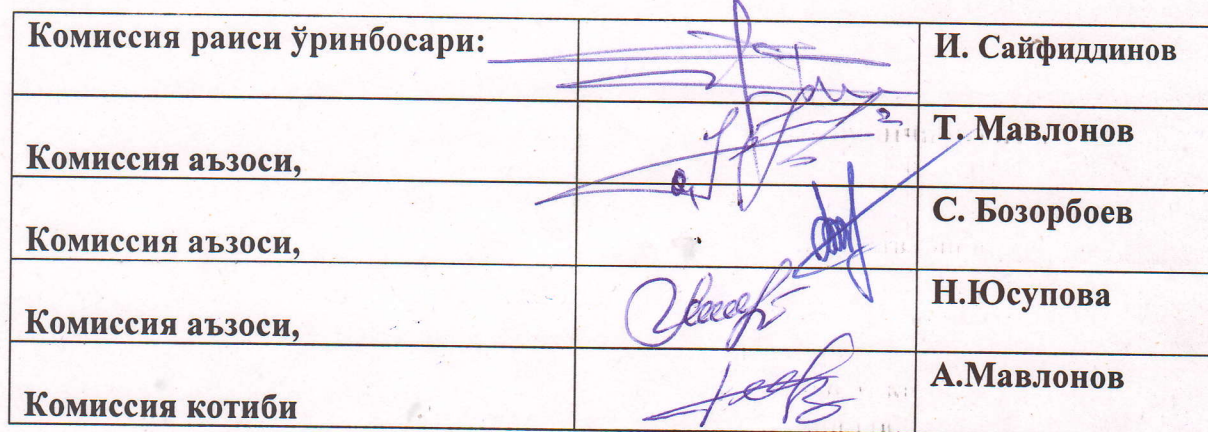 Комиссия раиси ўринбосари: И. Сайфиддинов
Комиссия аъзоси, Т. Мавлонов
Комиссия аъзоси, С. Бозорбоев
Комиссия аъзоси, Н.Юсупова
Комиссия котиби А.Мавлонов